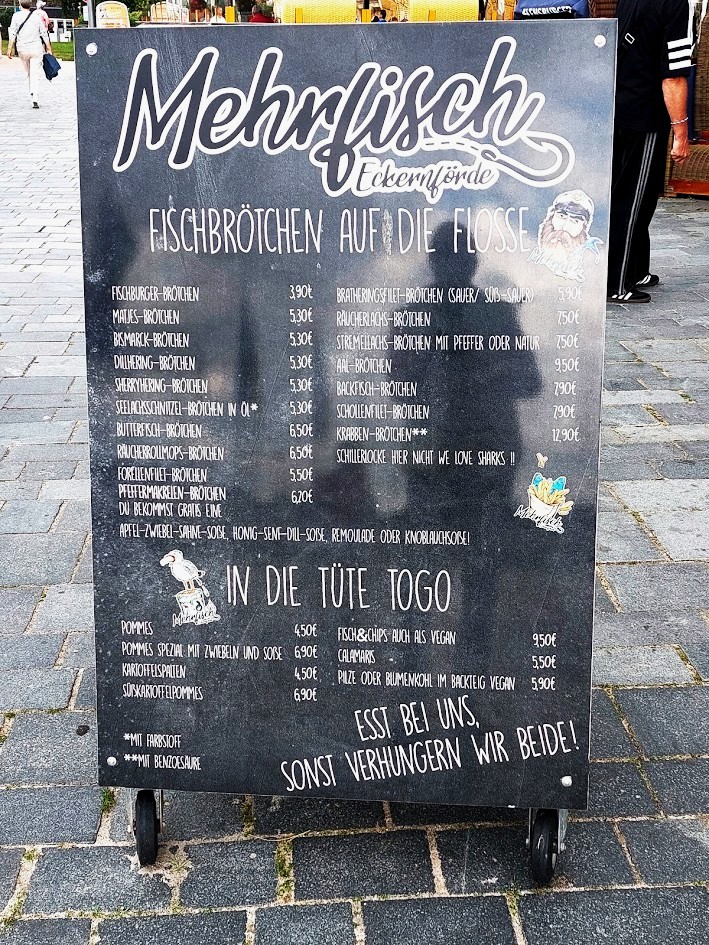 Mehrfisch
Eckernförde
FISCHBRÖTCHEN AUF DIE FLOSSE
FISCHBURGER-BRÖTCHEN 3,90€
MATJES-BRÖTCHEN 5,30€
BISMARCK-BRÖTCHEN 5,30€
DILLHERING-BRÖTCHEN 5,30€
SHERRYHERING-BRÖTCHEN 5,30€
SEELACHSSCHNITZEL-BRÖTCHEN IN ÖL* 5,30€
BUTTERFISCH-BRÖTCHEN 6,50€
RÄUCHERROLLMOPS-BRÖTCHEN 6,50€
FORELLENFILET-BRÖTCHEN 5,50€
PFEFFERMAKRELEN-BRÖTCHEN 6,20€
BRATHERINGSFILET-BRÖTCHEN (SAUER/ SÜß-SAUER) 5,90€
RÄUCHERLACHS-BRÖTCHEN 7,50€
STREMELLACHS-BRÖTCHEN MIT PFEFFER ODER NATUR 7,50€
AAL-BRÖTCHEN 9,50€
BACKFISCH-BRÖTCHEN 7,90€
SCHOLLENFILET-BRÖTCHEN 7,90€
KRABBEN-BRÖTCHEN** 12,90€
SCHILLERLOCKE HIER NICHT WE LOVE SHARKS !!
DU BEKOMMST GRATIS EINE
APFEL-ZWIEBEL-SAHNE-SOßE, HONIG-SENF-DILL-SOßE, REMOULADE ODER KNOBLAUCHSOßE!
IN DIE TÜTE TOGO
POMMES 4,50€
POMMES SPEZIAL MIT ZWIEBELN UND SOßE 6,90€
KARTOFFELSPALTEN 4,50€
SÜßKARTOFFELPOMMES 6,90€
FISCH&CHIPS AUCH ALS VEGAN 9,50€
CALAMARIS 5,50€
PILZE ODER BLUMENKOHL IM BACKTEIG VEGAN 5,90€
*MIT FARBSTOFF
**MIT BENZOESÄURE
ESST BEI UNS,
SONST VERHUNGERN WIR BEIDE!